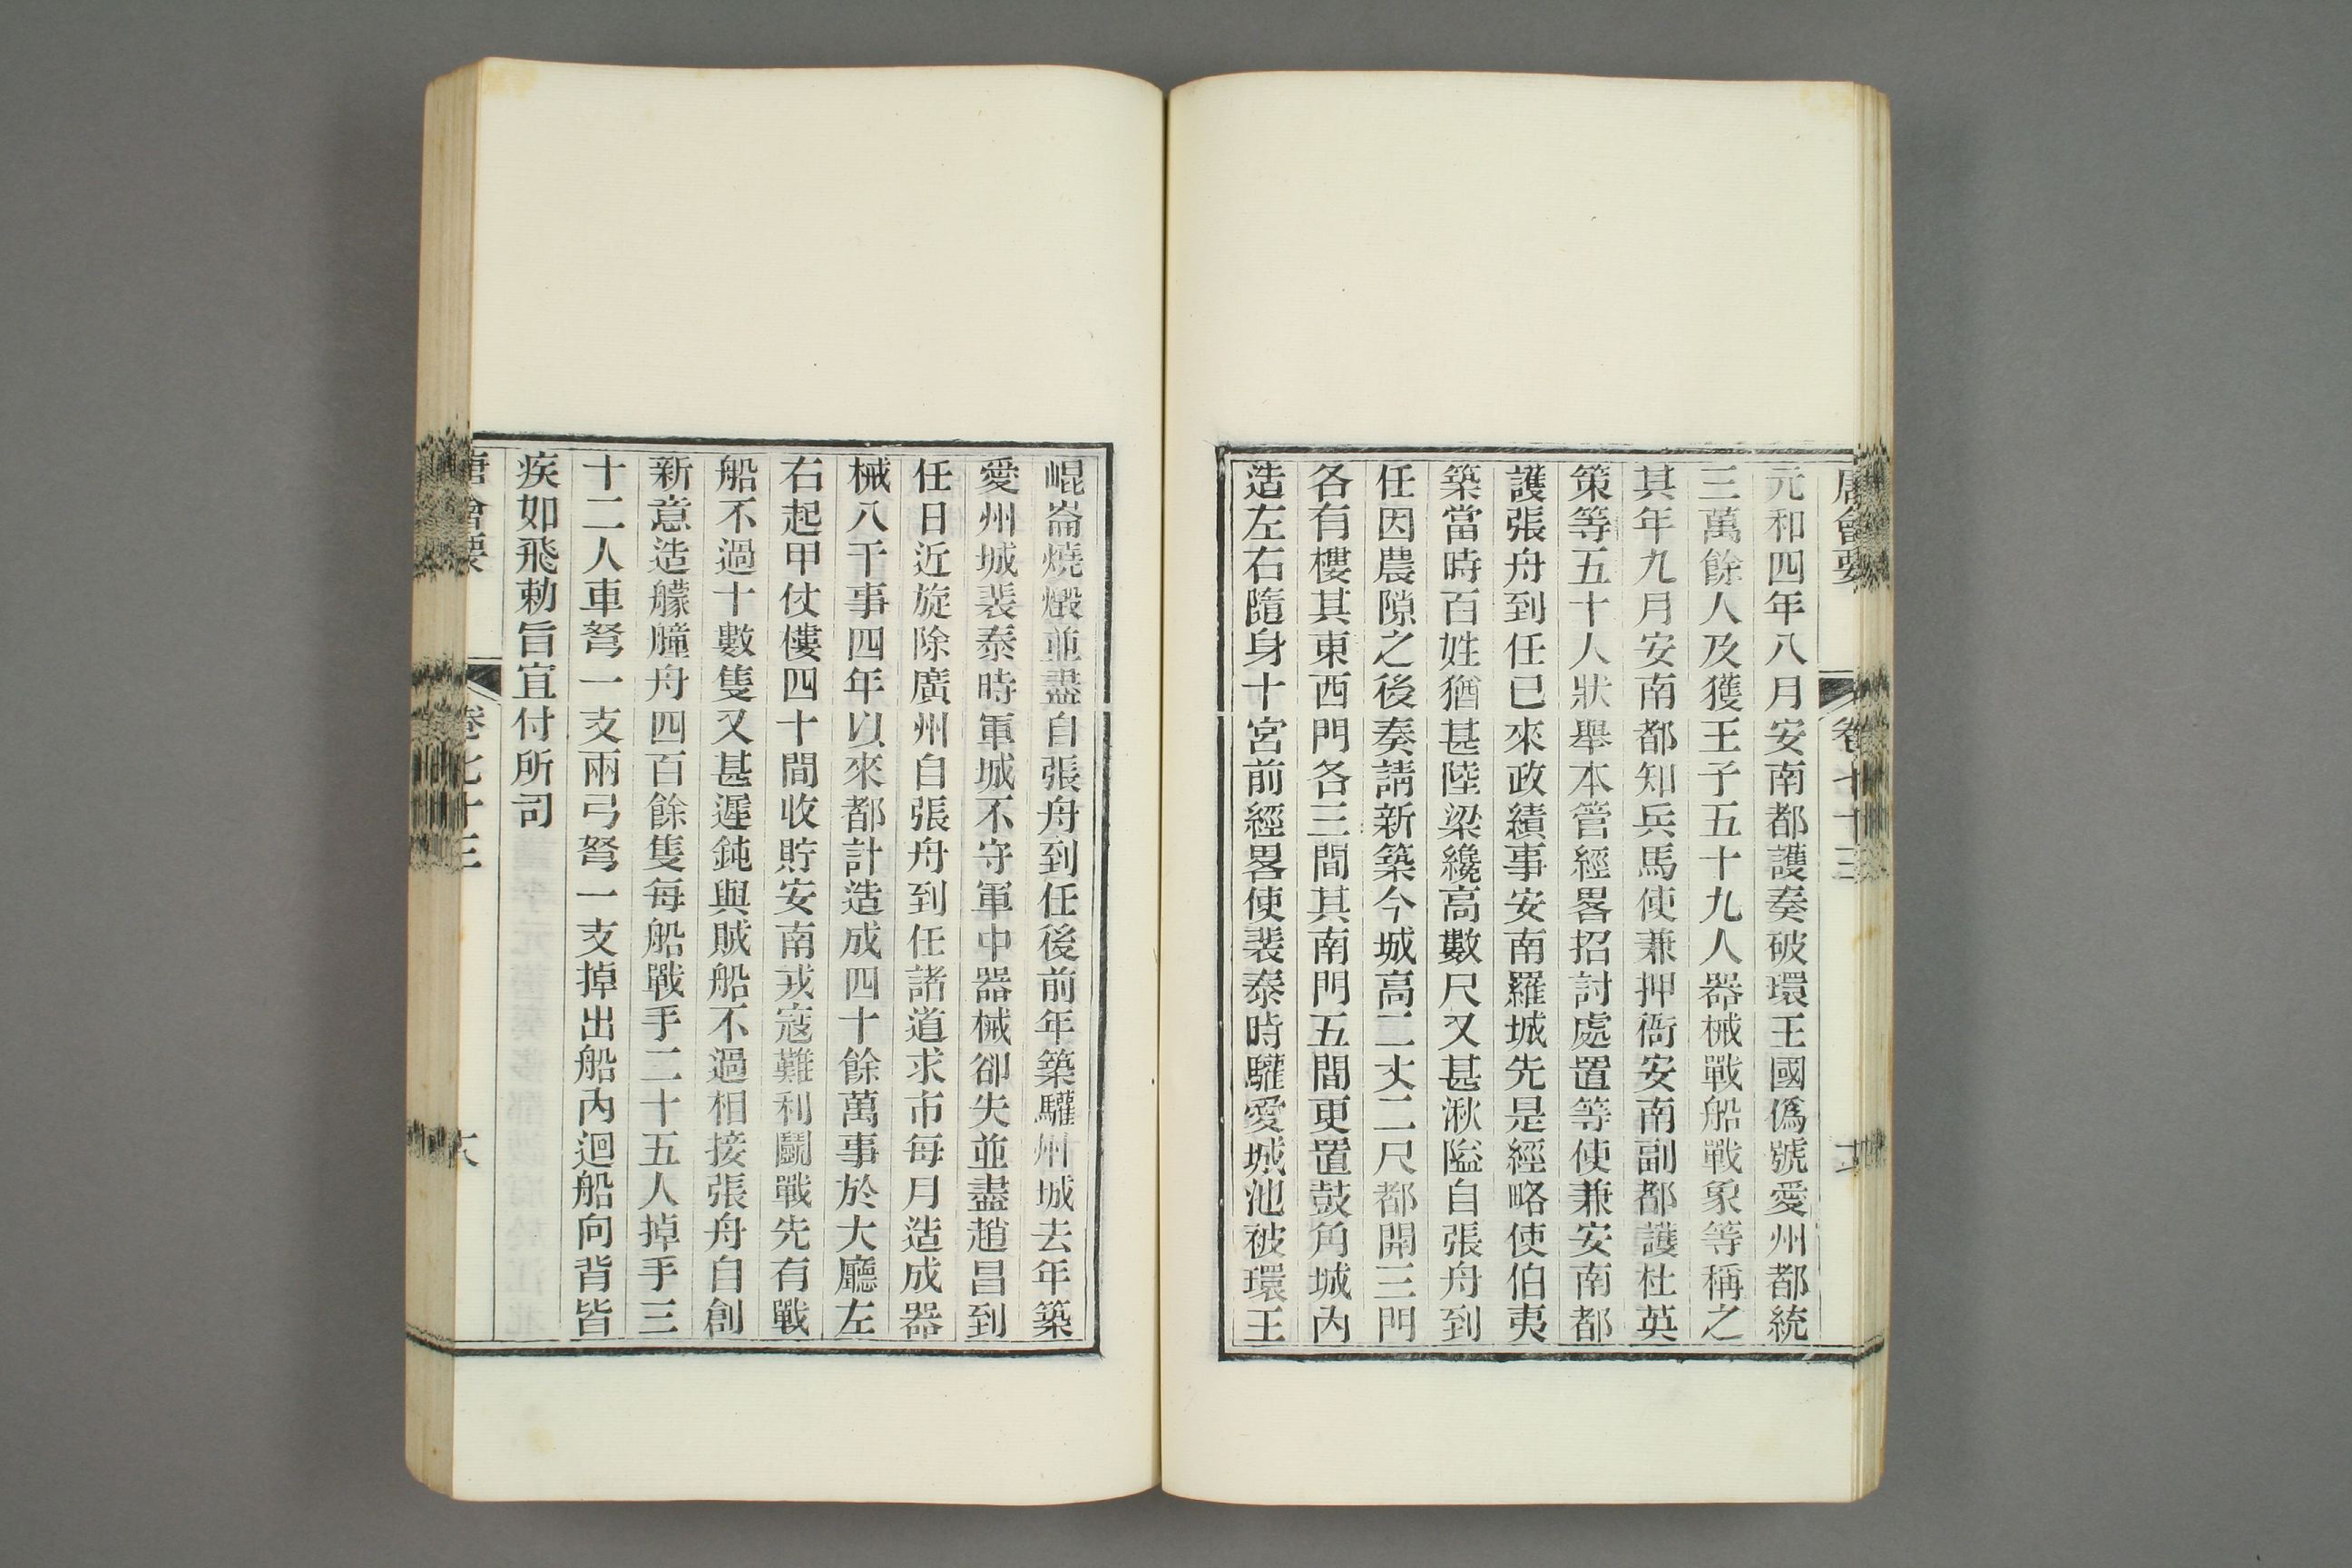 唐會要 卷七十三
元和四年八月安南都護奏破環王國僞號愛州都統
三萬餘人及獲王子五十九人器械戰船戰象等稱之
其年九月安南都知兵馬使兼押衙安南副都護杜英
策等五十人狀舉本管經畧招討處置等使兼安南都
護張舟到任已來政績事安南羅城先是經略使伯夷
築當時百姓猶甚陸梁纔高數尺又甚湫隘自張舟到
任因農隙之後奏請新築今城高二丈二尺都開三門
各有樓其東西門各三間其南門五間更置鼓角城內
造左右隨身十宮前經畧使裴泰時驩愛城池被環王
崐崙燒燬並盡自張舟到任後前年築驩州城去年築
愛州城裴泰時軍城不守軍中器械卻失並盡趙昌到
任日近旋除廣州自張舟到任諸道求市每月造成器
械八千事四年以來都計造成四十餘萬事於大廳左
右起甲仗樓四十間收貯安南戎寇難利鬭戰先有戰
船不過十數隻又甚遲鈍與賊船不過相接張舟自創
新意造艨艟舟四百餘隻每船戰手二十五人掉手三
十二人車弩一支兩弓弩一支掉出船內迴船向背皆
疾如飛勅旨宜付所司
唐會要 卷七十三